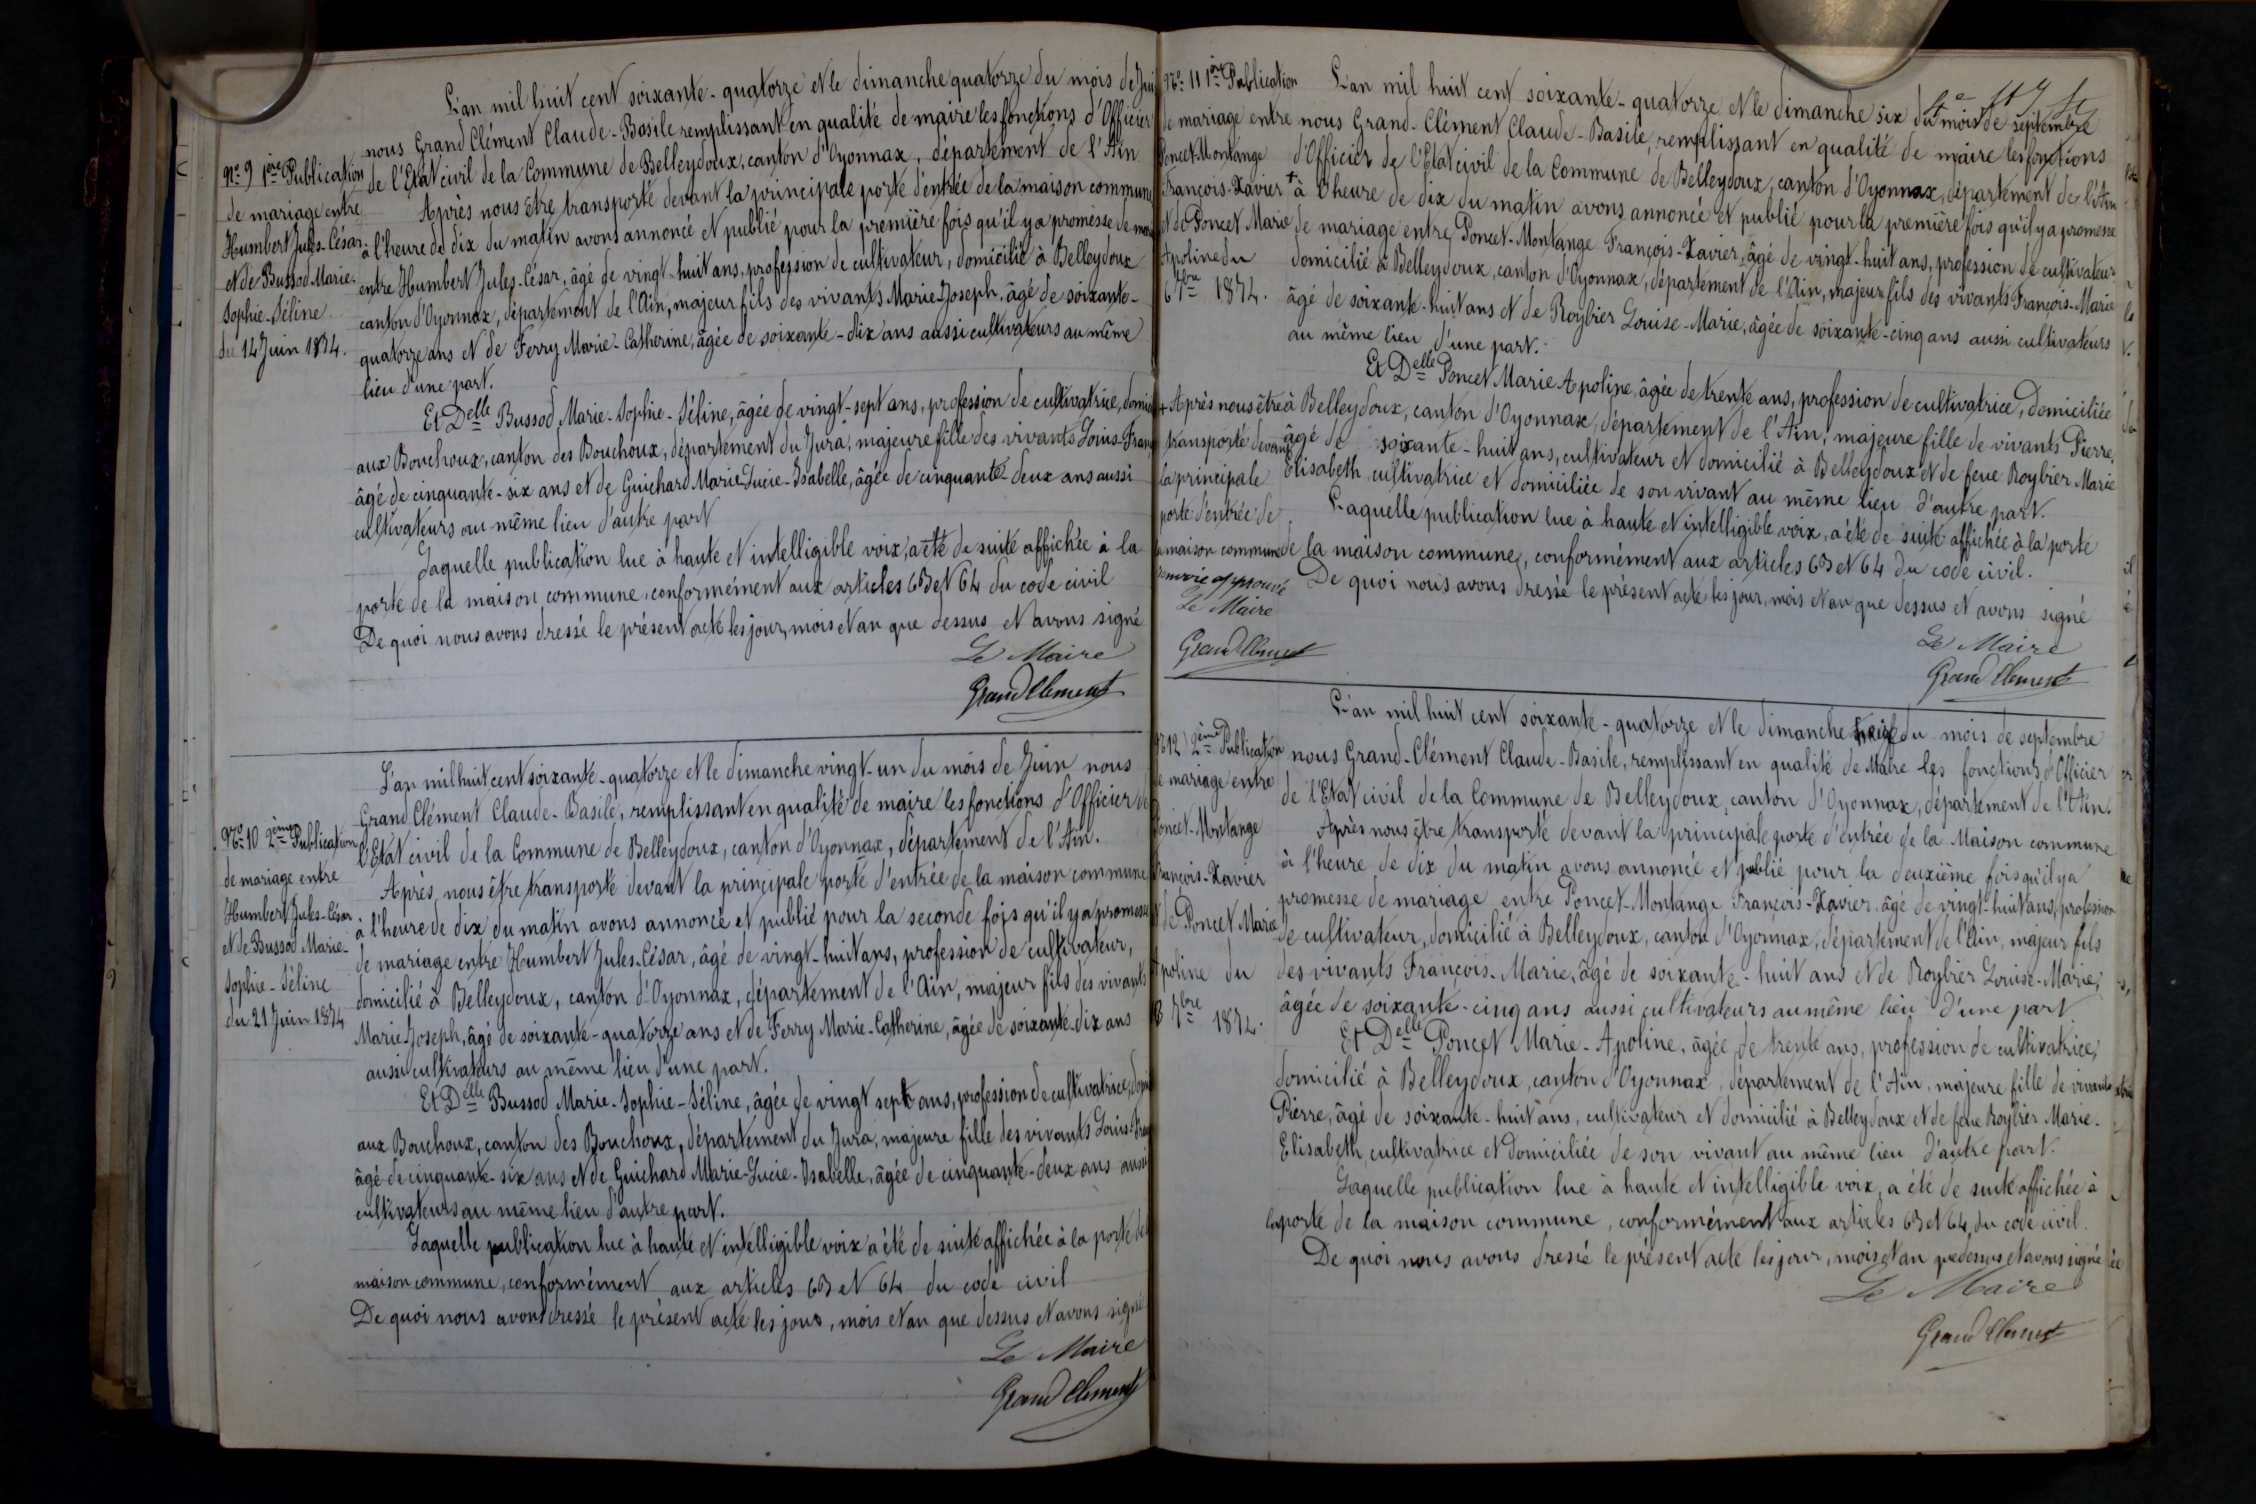 L'an mil huit cent soixante-quatorze et le dimanche quatorze du mois de Juin
nous Grand Clément Claude-Basile remplissant en qualité de maire les fonctions d'Officier
de l'Etat civil de la Commune de Belleydoux, canton d'Oyonnax, département de l'Ain
Après nous être transporté devant la principale porte d'entrée de la maison commune
à l'heure de dix du matin avons annoncé et publié pour la première fois qu'il y a promesse de
entre Humbert Jules-César, âgé de vingt-huit ans, profession de cultivateur, domicilié à Belleydoux
canton d'Oyonnax, département de l'Ain, majeur fils des vivants Marie-Joseph, âgé de soixante-
quatorze ans et de Ferry Marie-Catherine, âgée de soixante-dix ans aussi cultivateurs au même
lieu d'une part.
Et Delle Bussod Marie-Sophie-Séline, âgée de vingt-sept ans, profession de cultivatrice, domici
aux Bouchoux, canton des Bouchoux, département du Jura, majeure fille des vivants Louis-Fran
âgé de cinquante-six ans et de Guichard Marie-Lucie-Isabelle, âgée de cinquante-deux ans aussi
cultivateurs au même lieu d'autre part
Laquelle publication lue à haute et intelligible voix, a été de suite affichée à la
porte de la maison commune, conformément aux articles 63 et 64 du code civil
De quoi nous avons dressé le présent acte les jour, mois et an que dessus et avons signé
Le Maire
Grand Clement
No 9 1ère Publication
de mariage entre
Humbert Jules-César
et de Bussod Marie-
Sophie-Séline
du 14 Juin 1874.
L'an mil huit cent soixante-quatorze et le dimanche vingt-un du mois de Juin nous
Grand Clément Claude-Basile, remplissant en qualité de maire les fonctions d'Officier de
l'Etat civil de la Commune de Belleydoux, canton d'Oyonnax, département de l'Ain.
Après nous être transporté devant la principale porte d'entrée de la maison commune
à l'heure de dix du matin avons annoncé et publié pour la seconde fois qu'il y a promesse
de mariage entre Humbert Jules-César, âgé de vingt-huit ans, profession de cultivateur,
domicilié à Belleydoux, canton d'Oyonnax, département de l'Ain, majeur fils des vivants
Marie-Joseph, âgé de soixante-quatorze ans et de Ferry Marie-Catherine, âgée de soixante-dix ans
aussi cultivateurs au même lieu d'une part.
Et Delle Bussod Marie-Sophie-Séline, âgée de vingt sept ans, profession de cultivatrice, domi
aux Bouchoux, canton des Bouchoux, département du Jura, majeure fille des vivants Louis-Fran
âgé de cinquante-six ans et de Guichard Marie-Lucie-Isabelle, âgée de cinquante-deux ans aussi
cultivateurs au même lieu d'autre part.
Laquelle publication lue à haute et intelligible voix a été de suite affichée à la porte de
maison commune, conformément aux articles 63 et 64 du code civil
De quoi nous avons dressé le présent acte les jour, mois et an que dessus et avons signé
Le Maire
Grand Clement
No 10 2ème Publication
de mariage entre
Humbert Jules-César
et de Bussod Marie-
Sophie-Séline
du 21 Juin 1874
L'an mil huit cent soixante-quatorze et le dimanche six du mois de septembre
nous Grand-Clément Claude-Basile, remplissant en qualité de maire les fonctions
d'Officier de l'Etat civil de la Commune de Belleydoux, canton d'Oyonnax, département de l'Ain
+ à l'heure de dix du matin avons annoncé et publié pour la première fois qu'il y a promesse
de mariage entre Poncet-Montange François-Xavier, âgé de vingt-huit ans, profession de cultivateur
domicilié à Belleydoux, canton d'Oyonnax, département de l'Ain, majeur fils des vivants François-Marie
âgé de soixante-huit ans et de Roybier Louise-Marie, âgée de soixante-cinq ans aussi cultivateurs
au même lieu d'une part.
Et Delle Poncet Marie Apoline, âgée de trente ans, profession de cultivatrice, domiciliée
à Belleydoux, canton d'Oyonnax, département de l'Ain, majeure fille de vivants Pierre,
âgé de soixante-huit ans, cultivateur et domicilié à Belleydoux et de feue Roybier Marie
Elisabeth, cultivatrice et domiciliée de son vivant au même lieu d'autre part.
Laquelle publication lue à haute et intelligible voix, a été de suite affichée à la porte
de la maison commune, conformément aux articles 63 et 64 du code civil.
De quoi nous avons dressé le présent acte les jour, mois et an que dessus et avons signé
Le Maire
Grand Clement
No 11 1ère Publication
de mariage entre
Poncet-Montange
François-Xavier
et de Poncet Marie
Apoline du
6 7bre 1874.
+ Après nous être
transporté devant
la principale
porte d'entrée de
la maison commune
Renvoie approuvé
Le Maire
Grand Clement
L'an mil huit cent soixante-quatorze et le dimanche treize du mois de septembre
nous Grand-Clément Claude-Basile, remplissant en qualité de Maire les fonctions d'Officier
de l'Etat civil de la Commune de Belleydoux, canton d'Oyonnax, département de l'Ain.
Après nous être transporté devant la principale porte d'entrée de la Maison commune
à l'heure de dix du matin avons annoncé et publié pour la deuxième fois qu'il y a
promesse de mariage entre Poncet-Montange François-Xavier, âgé de vingt-huit ans, profession
de cultivateur, domicilié à Belleydoux, canton d'Oyonnax, département de l'Ain, majeur fils
des vivants François-Marie, âgé de soixante-huit ans et de Roybier Louise-Marie,
âgée de soixante-cinq ans aussi cultivateurs au même lieu d'une part
Et Delle Poncet Marie-Apoline, âgée de trente ans, profession de cultivatrice,
domicilié à Belleydoux, canton d'Oyonnax, département de l'Ain, majeure fille de vivants
Pierre, âgé de soixante-huit ans, cultivateur et domicilié à Belleydoux et de feue Roybier Marie-
Elisabeth, cultivatrice et domiciliée de son vivant au même lieu d'autre part.
Laquelle publication lue à haute et intelligible voix, a été de suite affichée à
la porte de la maison commune, conformément aux articles 63 et 64 du code civil.
De quoi nous avons dressé le présent acte les jour, mois et an que dessus et avons signé
Le Maire
Grand Clement
No 12 2ème Publication
de mariage entre
Poncet-Montange
François-Xavier
et de Poncet Marie
Apoline du
13 7bre 1874.